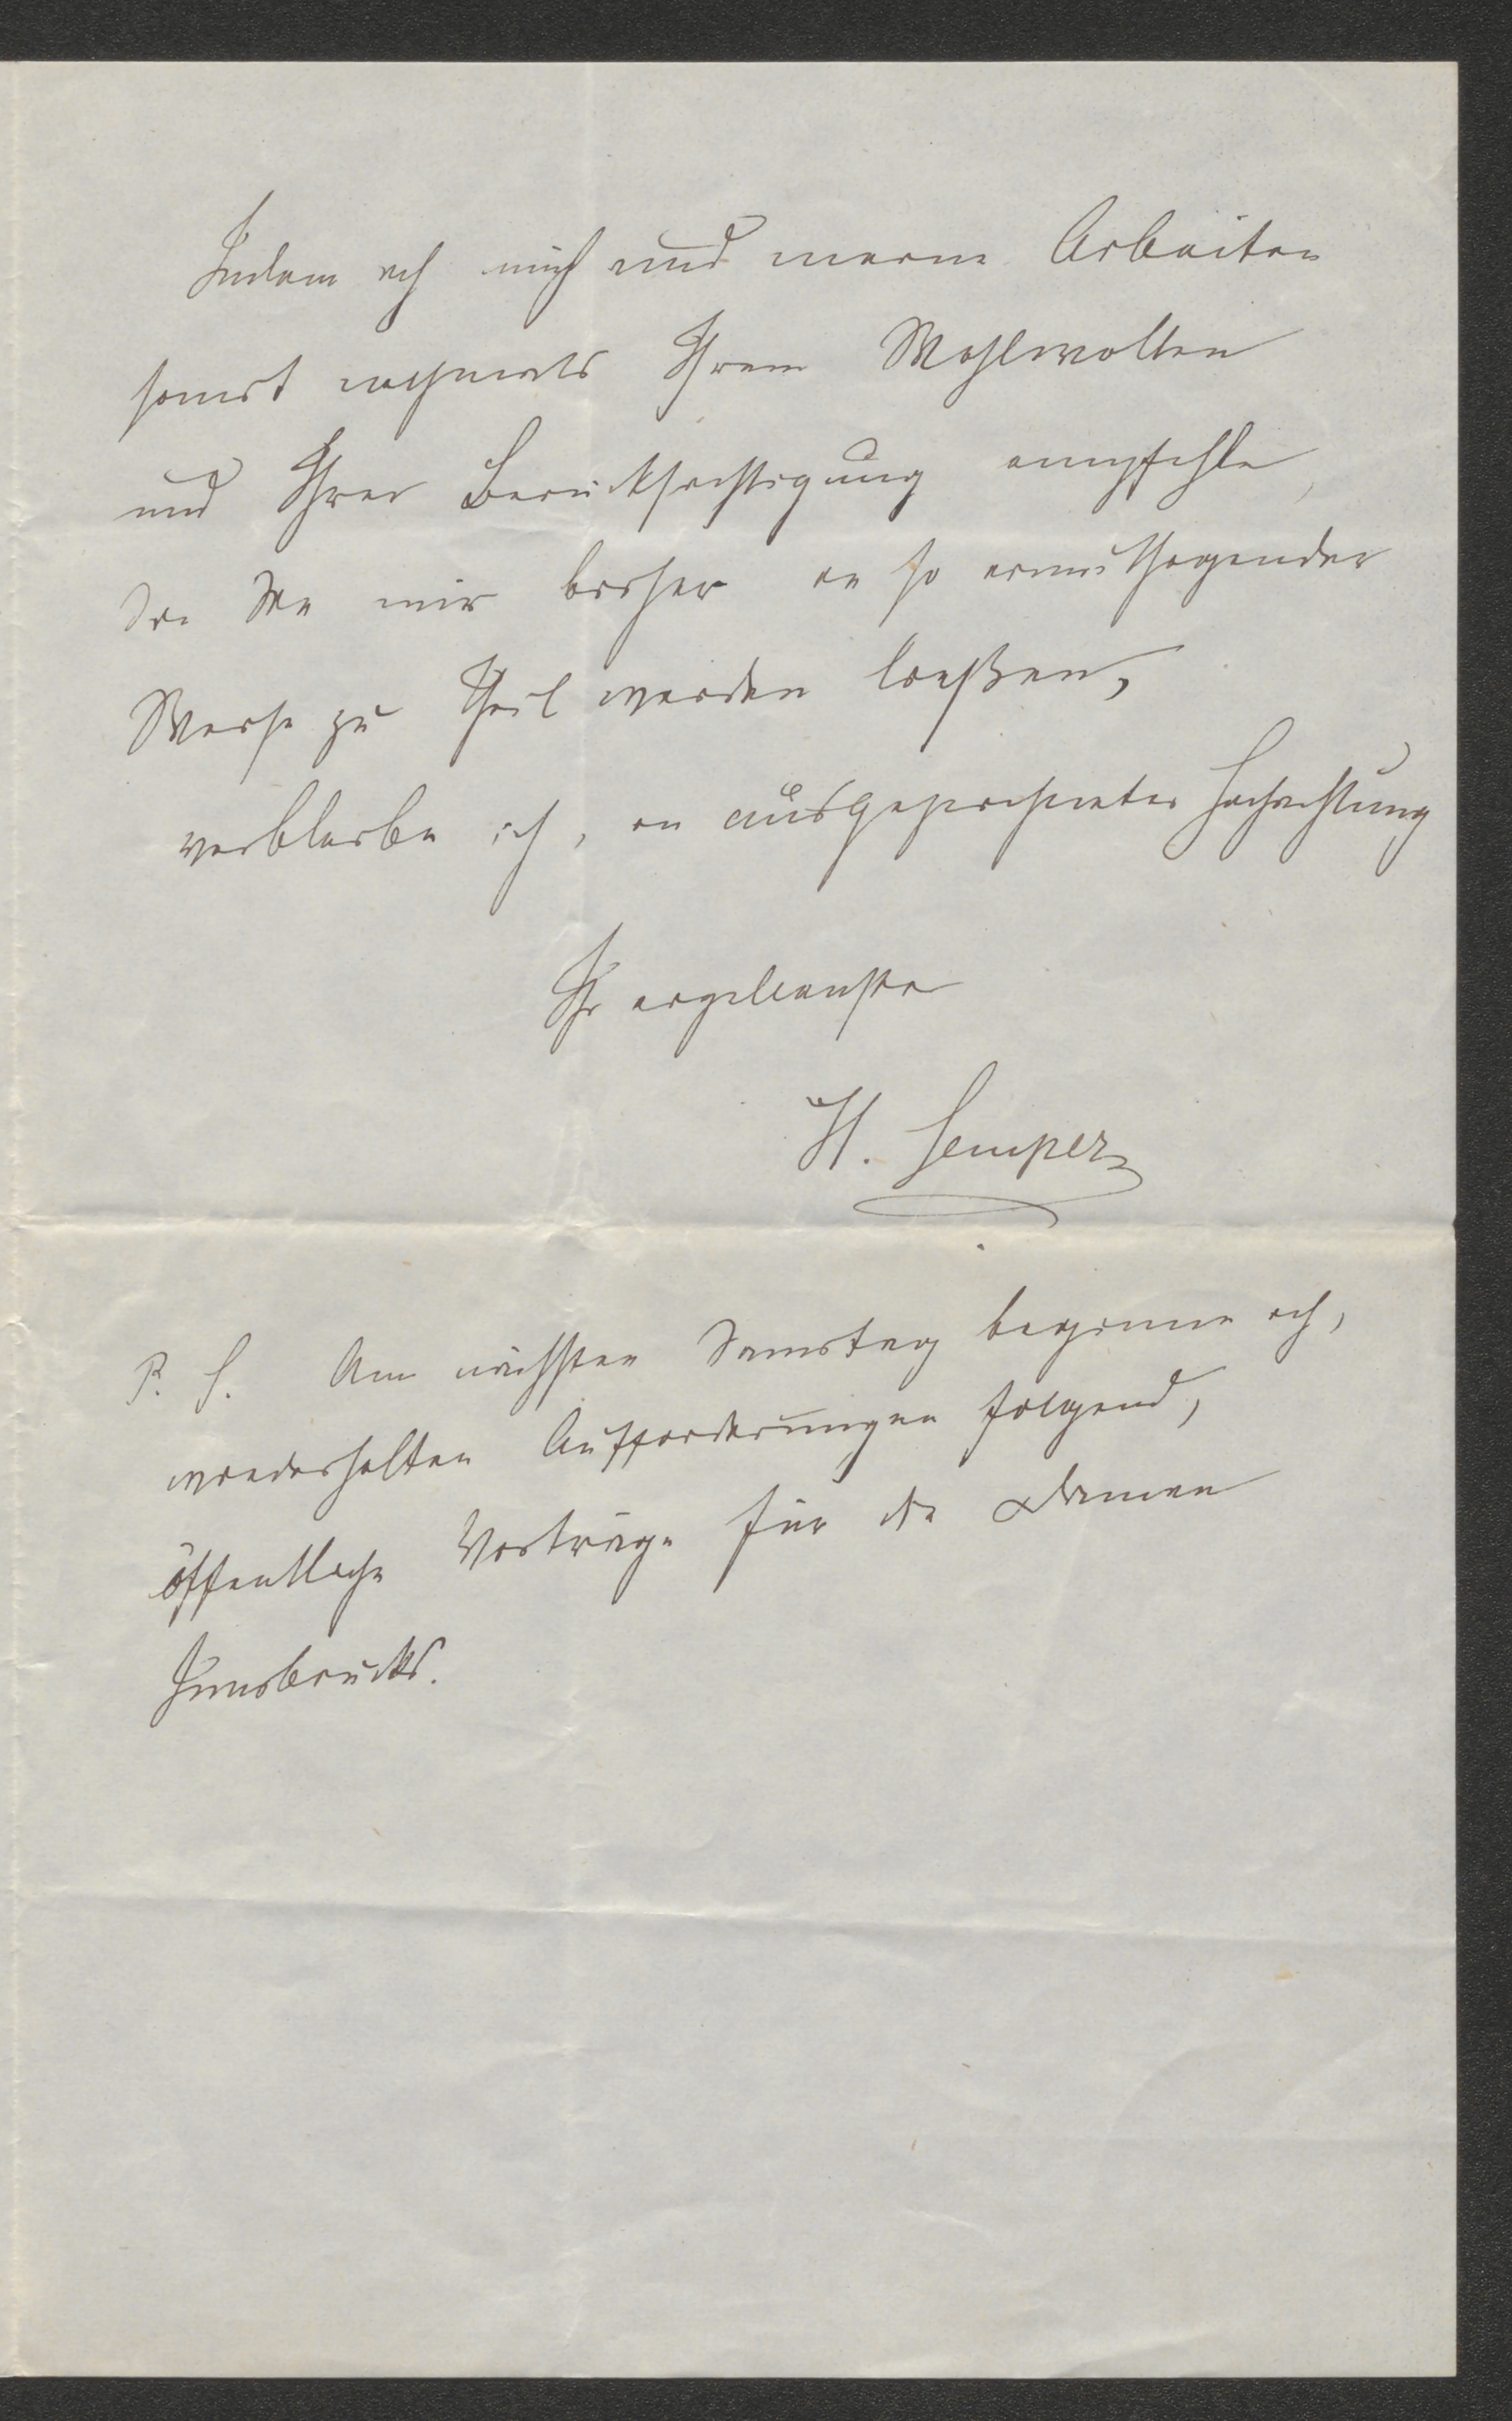 Indem ich mich und meine Arbeiten
somit nochmals Ihrem Wohlwollen
und Ihrer Berücksichtigung empfehle,
die Sie mir bisher in so ermuthigender
Weise zu Theil werden ließen,
verbleibe ich, in ausgezeichneter Hochachtung
Ihr ergebenster
H. Semper
P. S. Am nächsten Samstag beginne ich,
wiederholten Aufforderungen folgend,
öffentliche Vorträge für die Damen
Innsbrucks.